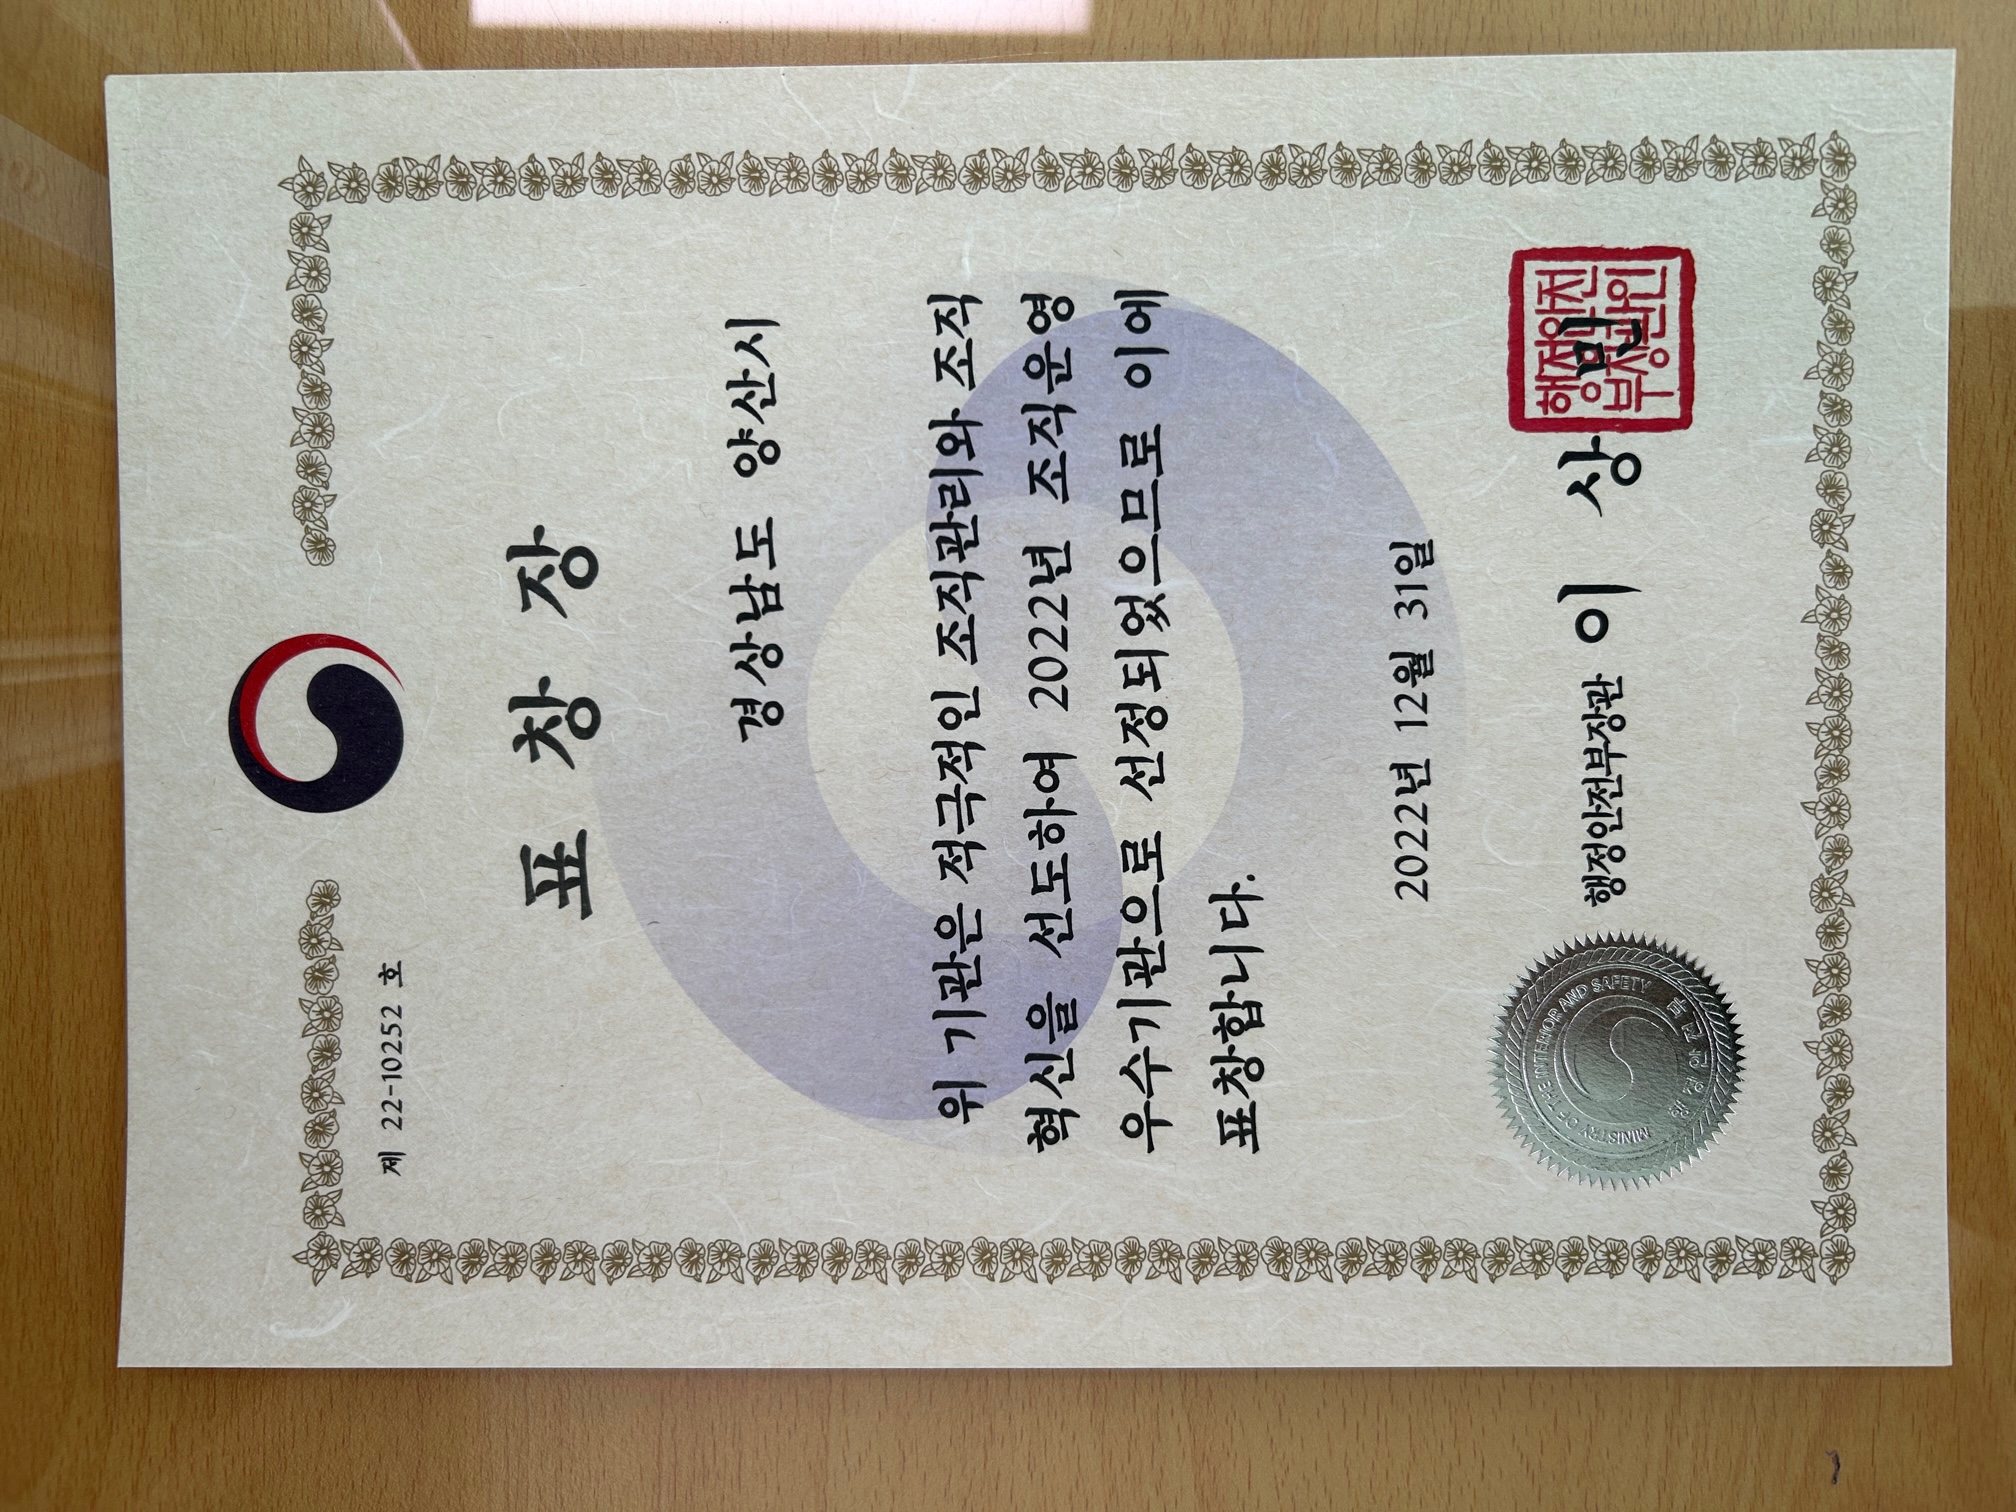 제 22-10252 호
표 창 장
경상남도 양산시
위 기관은 적극적인 조직관리와 조직
혁신을 선도하여 2022년 조직운영
우수기관으로 선정되었으므로 이에
표창합니다.
2022년 12월 31일
행정안전부장관 이 상 민
행정안전
부장관인
MINISTRY OF THE INTERIOR AND SAFETY
행정안전부